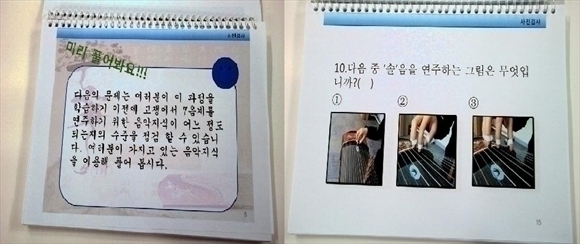 미리 풀어봐요!!!
다음의 문제는 여러분이 이 과정을
학습하기 이전에 고쟁에서 7음계를
연주하기 위한 음악지식이 어느 정도
되는지의 수준을 점검 할 수 있습니
다. 여러분이 가지고 있는 음악지식
을 이용해 풀어 봅시다.
사전검사
10.다음 중 '솔'음을 연주하는 그림은 무엇입
니까?( )
① ② ③
15